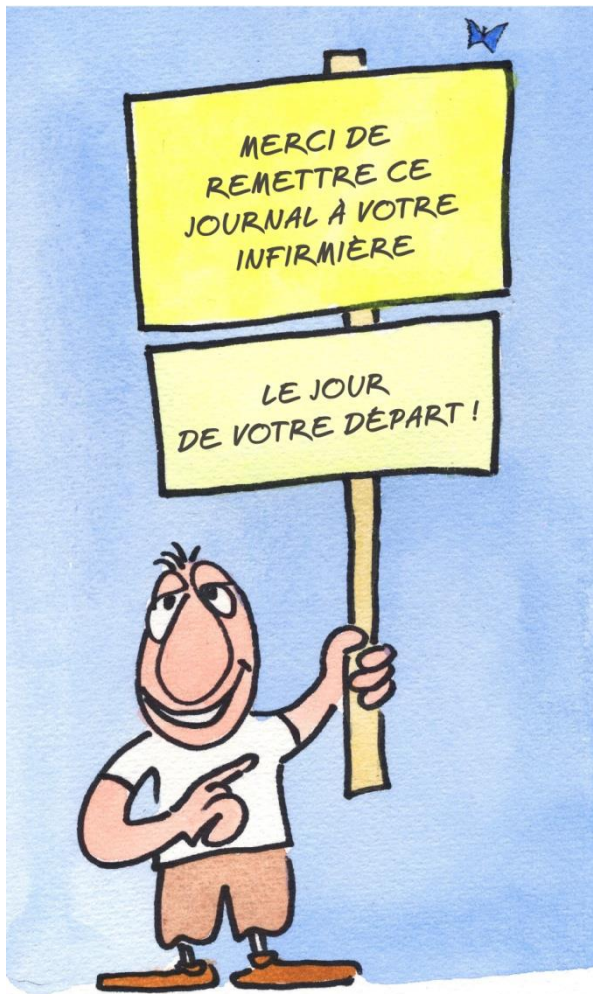 MERCI DE
REMETTRE CE
JOURNAL À VOTRE
INFIRMIÈRE
LE JOUR
DE VOTRE DÉPART !